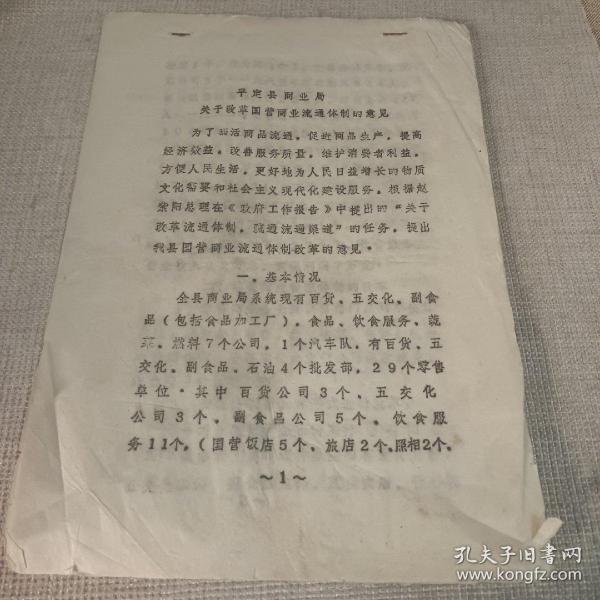 平定县商业局
关于改革国营商业流通体制的意见
为了搞活商品流通，促进商品生产，提高
经济效益，改善服务质量，维护消费者利益，
方便人民生活，更好地为人民日益增长的物质
文化需要和社会主义现代化建设服务。根据赵
紫阳总理在《政府工作报告》中提出的“关于
改革流通体制，疏通流通渠道”的任务，提出
我县国营商业流通体制改革的意见。
一、基本情况
全县商业局系统现有百货、五交化、副食
品（包括食品加工厂），食品、饮食服务、蔬
菜、燃料7个公司，1个汽车队，有百货、五
交化、副食品、石油4个批发部，29个零售
单位。其中百货公司3个、五交化
公司3个、副食品公司5个、饮食服
务11个，（国营饭店5个、旅店2个、照相2个、
～1～
孔夫子旧书网
www.kongfz.com